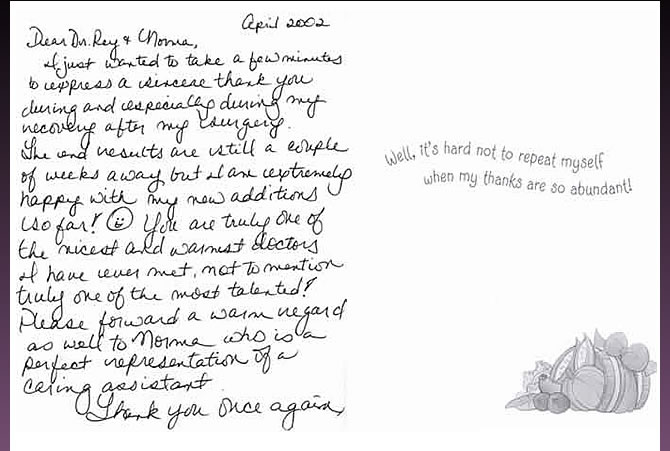 April 2002
Dear Dr. Rey & Norma,
I just wanted to take a few minutes
to express a sincere thank you
during and especially during my
recovery after my surgery.
The end results are still a couple
of weeks away, but I am extremely
happy with my new additions
so far! You are truly one of
the nicest and warmest doctors
I have ever met, not to mention
truly one of the most talented!
Please forward a warm regard
as well to Norma who is a
perfect representation of a
caring assistant.
Thank you once again,
Well, it's hard not to repeat myself
when my thanks are so abundant!